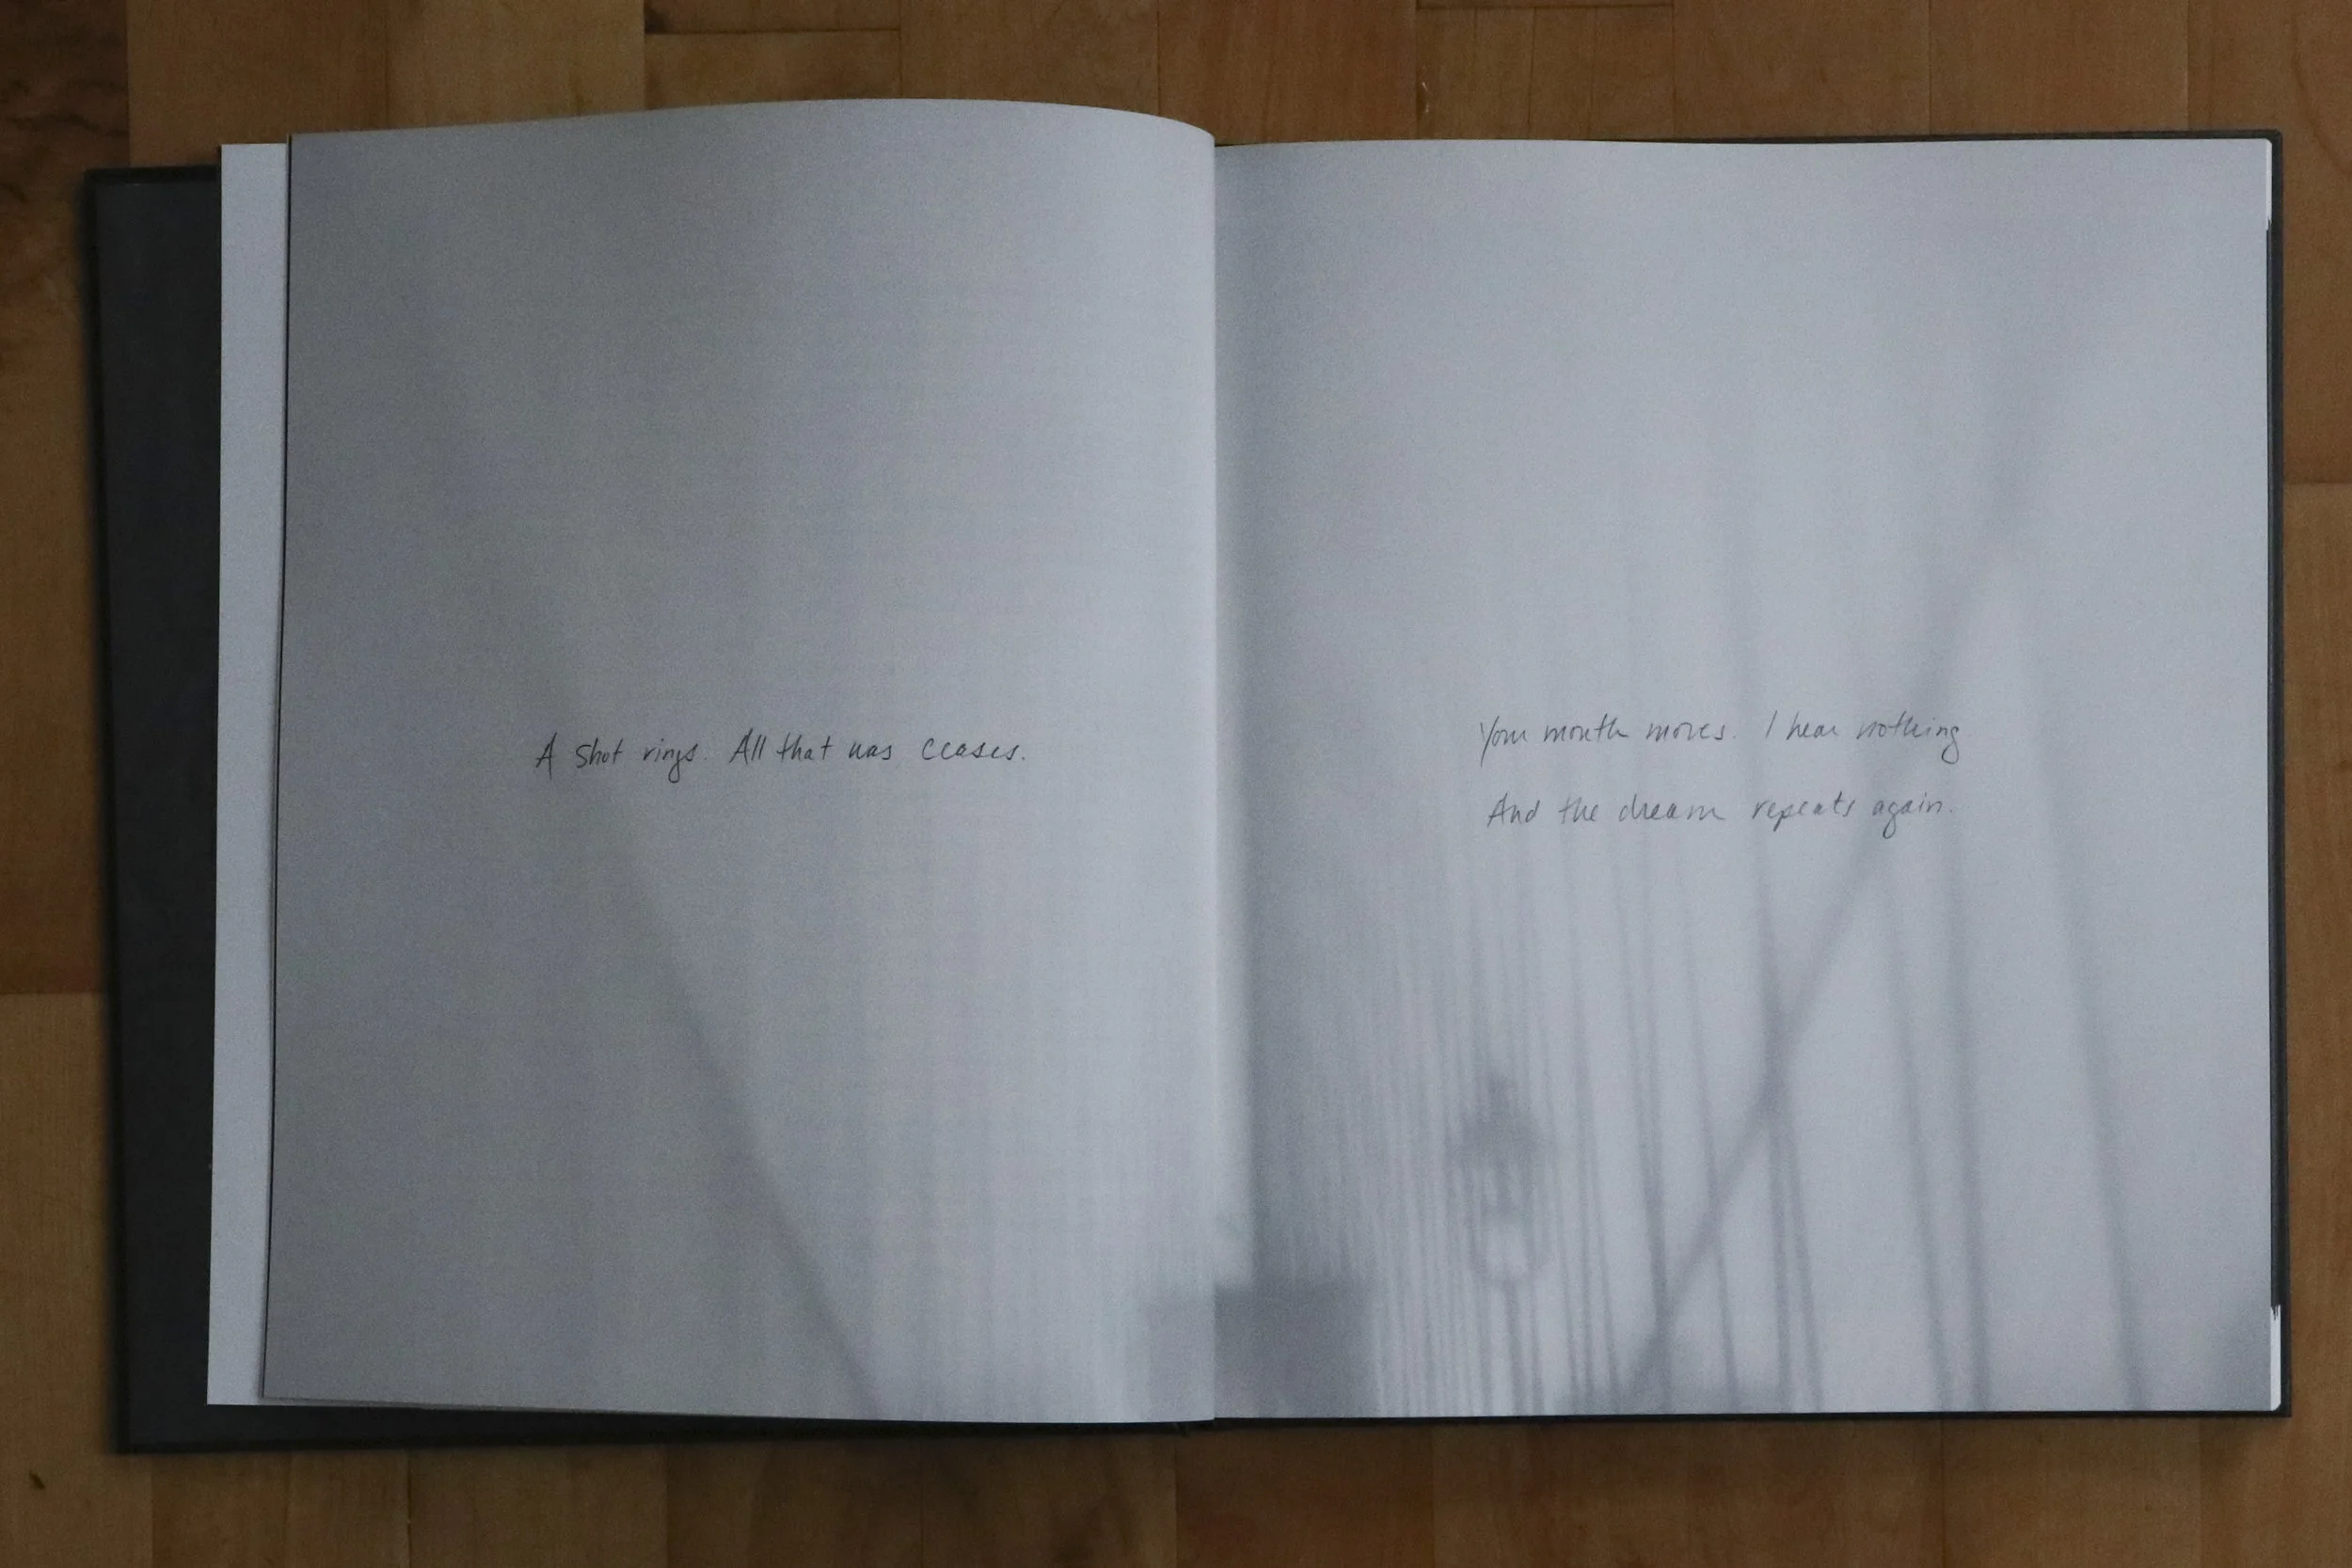 A shot rings. All that was ceases.
Your mouth moves. I hear nothing
And the dream repeats again.